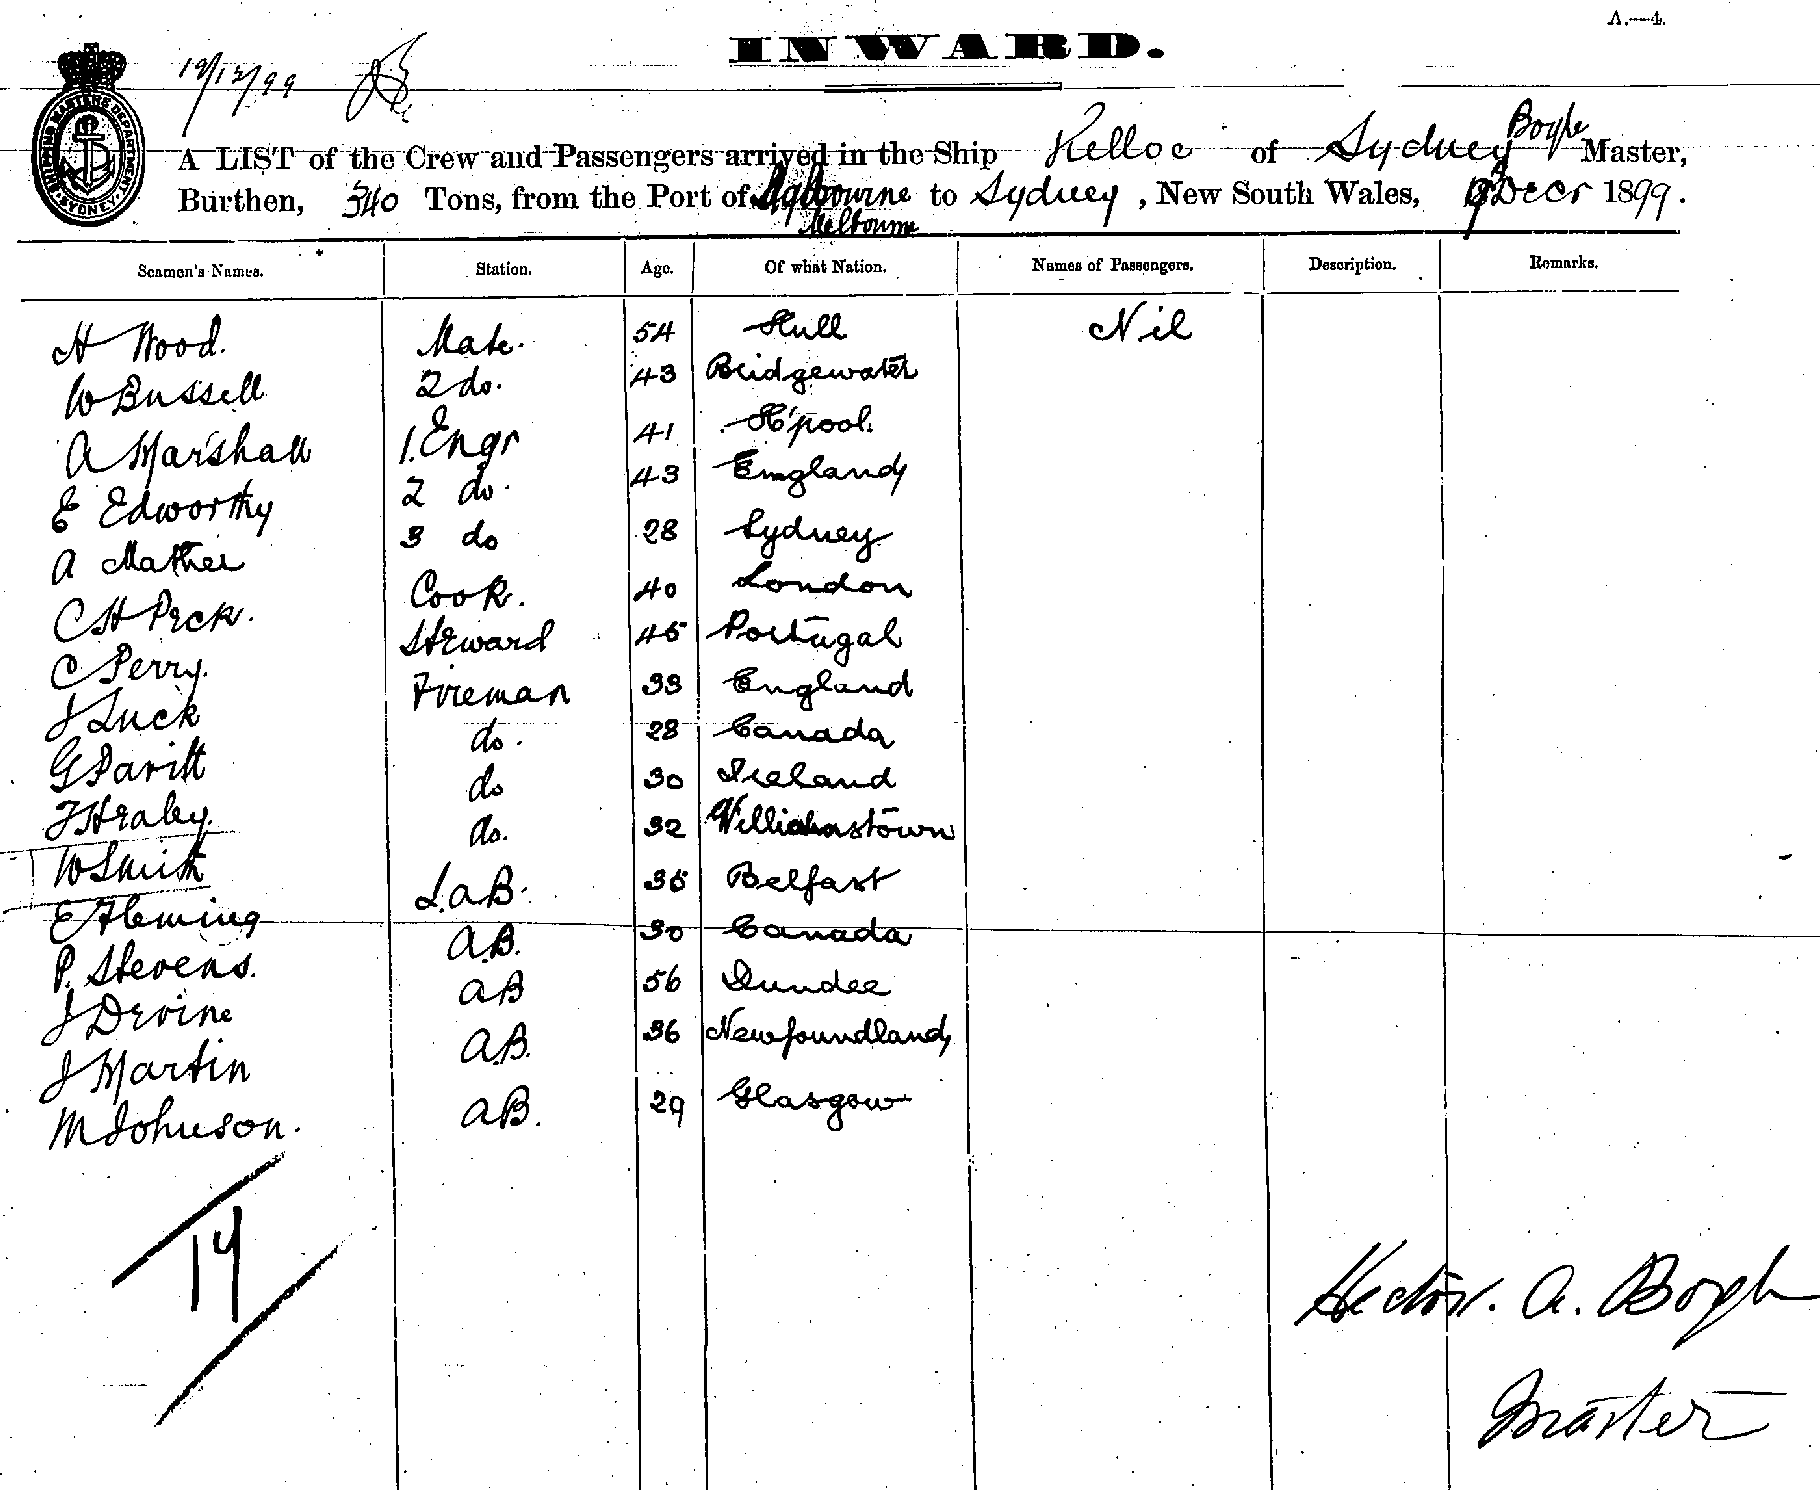 A.—4.
INWARD.
19/12/99
SHIPPING MASTERS DEPARTMENT SYDNEY
Boyle
A LIST of the Crew and Passengers arrived in the Ship Kelloe of Sydney Master,
Burthen, 340 Tons, from the Port of Melbourne to Sydney, New South Wales, Decr 1899.
Melbourne
Seamen's Names. Station. Age. Of what Nation. Names of Passengers. Description. Remarks.
H Wood. Mate. 54 Hull Nil
W Bussell 2 do. 43 Bridgewater
A Marshall 1. Engr 41 H'pool.
E Edworthy 2 do. 43 England
A Mather 3 do 28 Sydney
C H Peck. Cook. 40 London
C Perry. Steward 45 Portugal
J Luck Fireman 33 England
G Paritt do. 28 Canada
J Healey. do 30 Ireland
W Smith do. 32 Williamstown
E Fleming L.AB. 35 Belfast
P. Stevens. AB. 30 Canada
J Devine AB 56 Dundee
J Martin AB. 36 Newfoundland
M Johnson. AB. 29 Glasgow
17
Hector. A. Boyle
Master